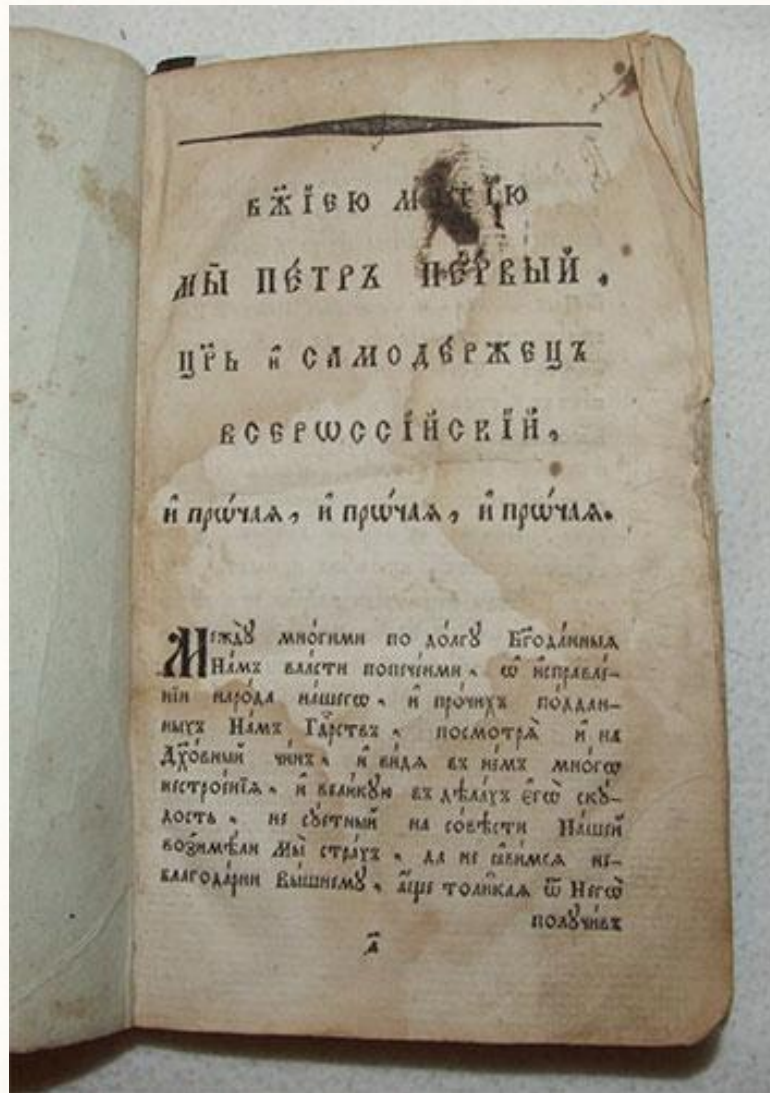 Бж҃їею м
Мы̀ Пе́тръ Пе́рвый,
Цр҃ь и҆ Самоде́ржецъ
Всерѡссі́йскїй,
и҆ прѡ́чаѧ, и҆ прѡ́чаѧ, и҆ прѡ́чаѧ.
Междꙋ̀ мно́гими по до́лгꙋ Бг҃ода́нныѧ
На́мъ вла́сти попече́ньми, ѡ҆ и҆справле́-
нїи наро́да на́шегѡ, и҆ про́чихъ по́ддан-
ныхъ На́мъ Гдⷭ҇рствъ, посмотрѧ̀ и҆ на
Дх҃о́вный чи́нъ, и҆ ви́дѧ въ не́мъ мно́гѡ
нестрое́нїѧ, и҆ вели́кꙋю въ дѣ́лахъ є҆гѡ̀ скꙋ́-
дость, не сꙋ́етный на со́вѣсти На́шей
возимѣ́ли Мы̀ стра́хъ, да не ꙗ҆ви́мсѧ не-
благода́рни Вы́шнемꙋ, а҆́ще толи́каѧ ѿ Негѡ̀
полꙋчи́въ
а҃